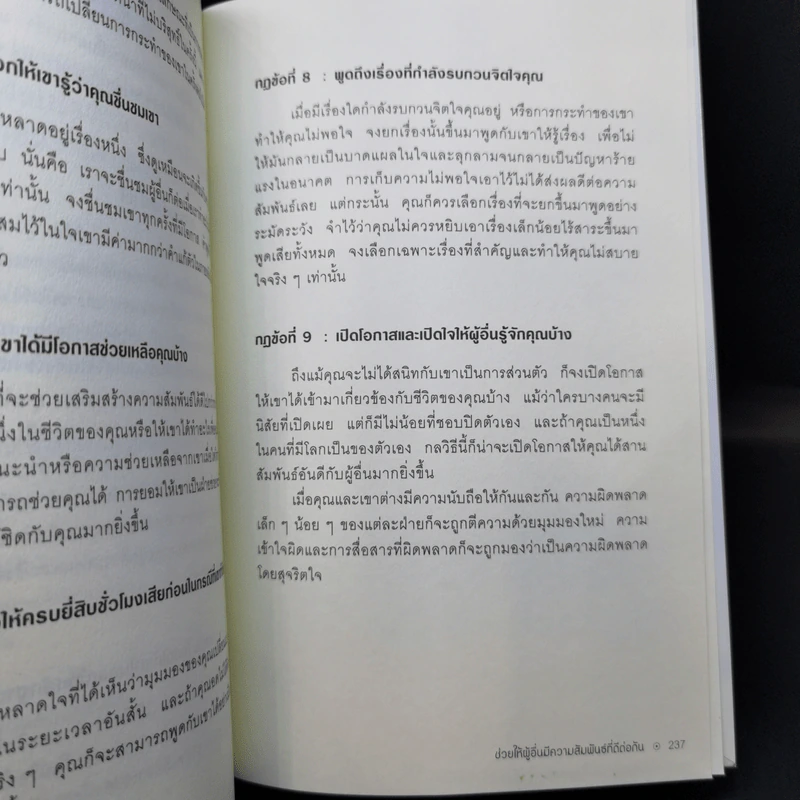 อกให้เขารู้ว่าคุณชื่นชมเขา
หลาดอยู่เรื่องหนึ่ง ซึ่งดูเหมือนจะเกิดขึ้น
บ นั่นคือ เราจะชื่นชมผู้อื่นก็ต่อเมื่อ
ท่านั้น จงชื่นชมเขาทุกครั้งที่มีโอกาส
สมไว้ในใจเขามีค่ามากกว่าคำแก้ตัว
ว
ขาได้มีโอกาสช่วยเหลือคุณบ้าง
ที่จะช่วยเสริมสร้างความสัมพันธ์ให้
นึ่งในชีวิตของคุณหรือให้เขาได้ทำ
นะนำหรือความช่วยเหลือจากเขา
ารถช่วยคุณได้ การยอมให้เขาเป็นฝ่าย
ชิดกับคุณมากยิ่งขึ้น
ให้ครบยี่สิบชั่วโมงเสียก่อนในกรณีที่
หลาดใจที่ได้เห็นว่ามุมมองของคุณเปลี่ยน
ในระยะเวลาอันสั้น และถ้าคุณ
ริง ๆ คุณก็จะสามารถพูดกับเขาได้
กฎข้อที่ 8 : พูดถึงเรื่องที่กำลังรบกวนจิตใจคุณ
เมื่อมีเรื่องใดกำลังรบกวนจิตใจคุณอยู่ หรือการกระทำของเขา
ทำให้คุณไม่พอใจ จงยกเรื่องนั้นขึ้นมาพูดกับเขาให้รู้เรื่อง เพื่อไม่
ให้มันกลายเป็นบาดแผลในใจและลุกลามจนกลายเป็นปัญหาร้าย
แรงในอนาคต การเก็บความไม่พอใจเอาไว้ไม่ได้ส่งผลดีต่อความ
สัมพันธ์เลย แต่กระนั้น คุณก็ควรเลือกเรื่องที่จะยกขึ้นมาพูดอย่าง
ระมัดระวัง จำไว้ว่าคุณไม่ควรหยิบเอาเรื่องเล็กน้อยไร้สาระขึ้นมา
พูดเสียทั้งหมด จงเลือกเฉพาะเรื่องที่สำคัญและทำให้คุณไม่สบาย
ใจจริง ๆ เท่านั้น
กฎข้อที่ 9 : เปิดโอกาสและเปิดใจให้ผู้อื่นรู้จักคุณบ้าง
ถึงแม้คุณจะไม่ได้สนิทกับเขาเป็นการส่วนตัว ก็จงเปิดโอกาส
ให้เขาได้เข้ามาเกี่ยวข้องกับชีวิตของคุณบ้าง แม้ว่าใครบางคนจะมี
นิสัยที่เปิดเผย แต่ก็มีไม่น้อยที่ชอบปิดตัวเอง และถ้าคุณเป็นหนึ่ง
ในคนที่มีโลกเป็นของตัวเอง กลวิธีนี้ก็น่าจะเปิดโอกาสให้คุณได้สาน
สัมพันธ์อันดีกับผู้อื่นมากยิ่งขึ้น
เมื่อคุณและเขาต่างมีความนับถือให้กันและกัน ความผิดพลาด
เล็ก ๆ น้อย ๆ ของแต่ละฝ่ายก็จะถูกตีความด้วยมุมมองใหม่ ความ
เข้าใจผิดและการสื่อสารที่ผิดพลาดก็จะถูกมองว่าเป็นความผิดพลาด
โดยสุจริตใจ
ช่วยให้ผู้อื่นมีความสัมพันธ์ที่ดีต่อกัน ⊙ 237